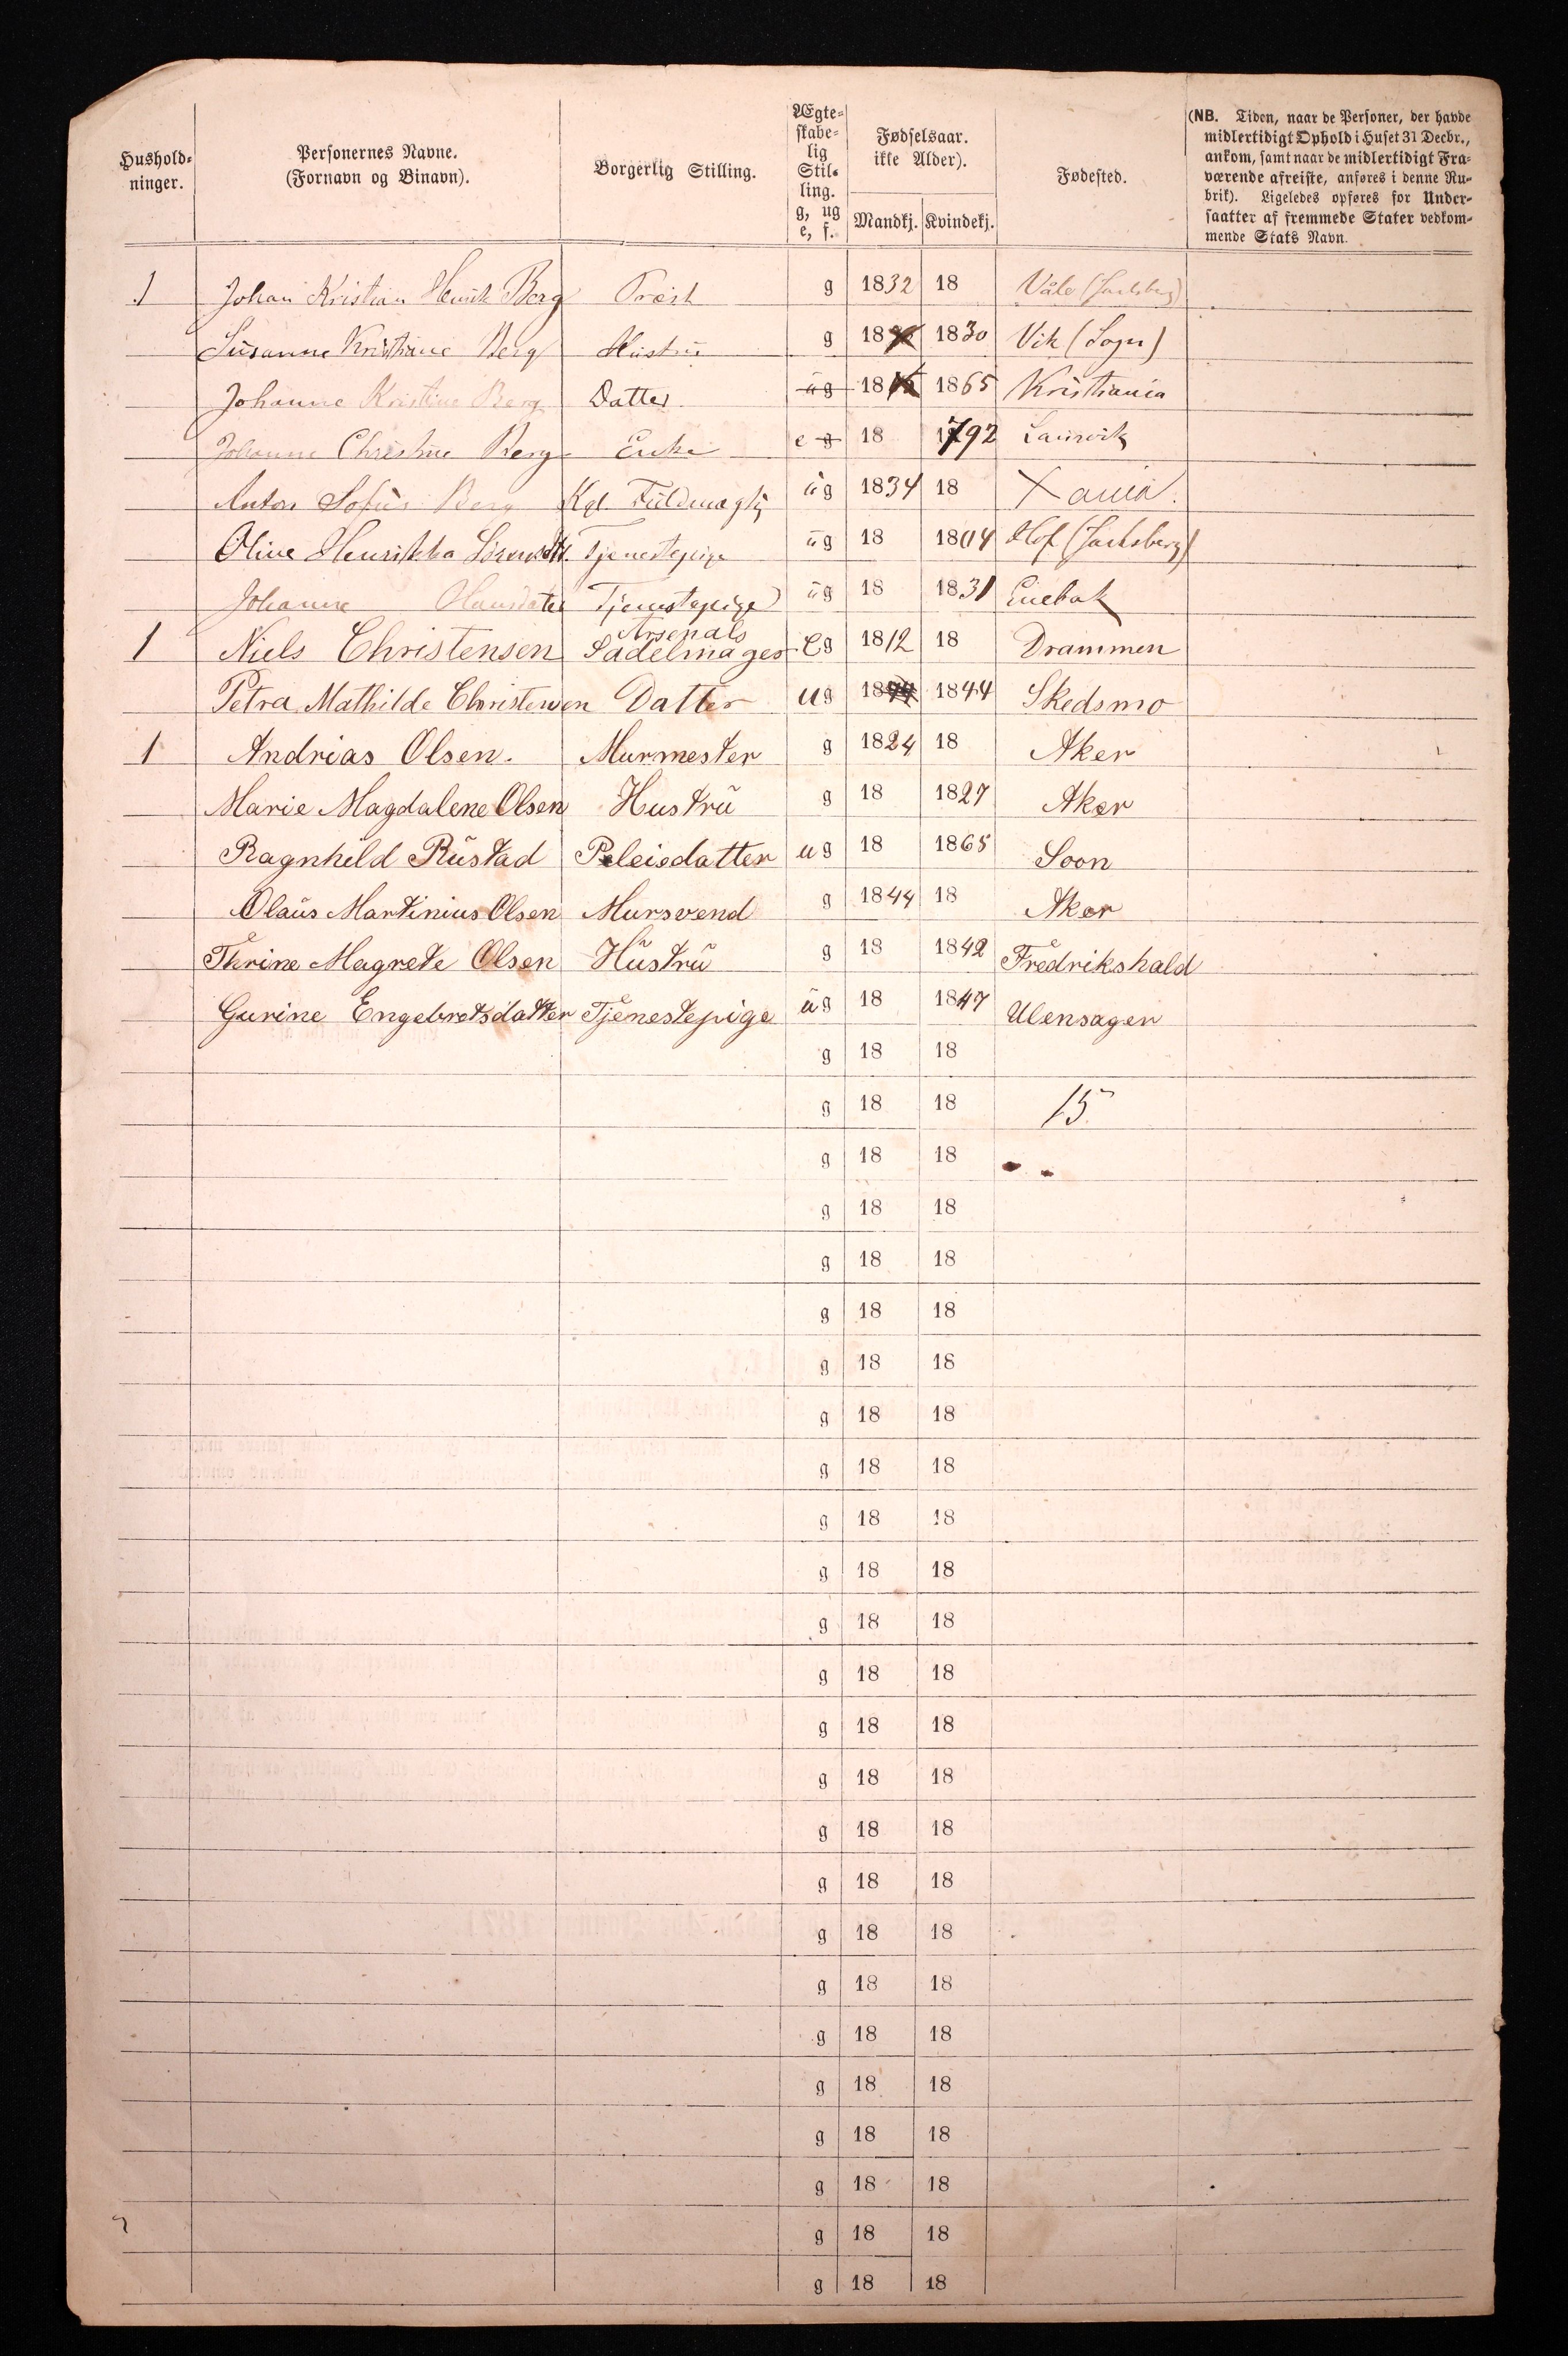 Hushold-
ninger.
Personernes Navne.
(Fornavn og Binavn).
Borgerlig Stilling.
Ægte-
skabe-
lig
Stil-
ling.
g, ug
e, f.
Fødselsaar.
ikke Alder).
Mandkj. Kvindekj.
Fødested.
(NB. Tiden, naar de Personer, der havde
midlertidigt Ophold i Huset 31 Decbr.,
ankom, samt naar de midlertidigt Fra-
værende afreiste, anføres i denne Ru-
brik). Ligeledes opføres for Under-
saatter af fremmede Stater vedkom-
mende Stats Navn.
1 Johan Kristian Henrik Berg Præst g 1832 18 Våle (Jarlsberg)
Susanne Kristiane Berg Hustru g 18 1830 Vik (Sogn)
Johanne Kristine Berg Datter ug 18 1865 Kristiania
Johanne Christine Berg Enke e g 18 1792 Laurvik
Anton Sofus Berg Kgl. Fuldmægtig ug 1834 18 Xania.
Olive Henrikka Tjenestepige ug 18 18 Hof (Jarlsberg)
Johanne Hansdatter Tjenestepige ug 18 1831 Enebak
1 Niels Christensen Arsenals
Sadelmager eg 1812 18 Drammen
Petra Mathilde Christensen Datter ug 1844 1844 Skedsmo
1 Andrias Olsen. Murmester g 1824 18 Aker
Marie Magdalene Olsen Hustru g 18 1827 Aker
Ragnhild Rustad Pleiedatter ug 18 1865 Soon
Olaus Martinius Olsen Mursvend g 1844 18 Aker
Thrine Magrete Olsen Hustru g 18 1842 Fredrikshald
Gurine Engebretsdatter Tjenestepige ug 18 1847 Ulensager
g 18 18
g 18 18 15
g 18 18
g 18 18
g 18 18
g 18 18
g 18 18
g 18 18
g 18 18
g 18 18
g 18 18
g 18 18
g 18 18
g 18 18
g 18 18
g 18 18
g 18 18
g 18 18
g 18 18
g 18 18
g 18 18
g 18 18
g 18 18
g 18 18
g 18 18